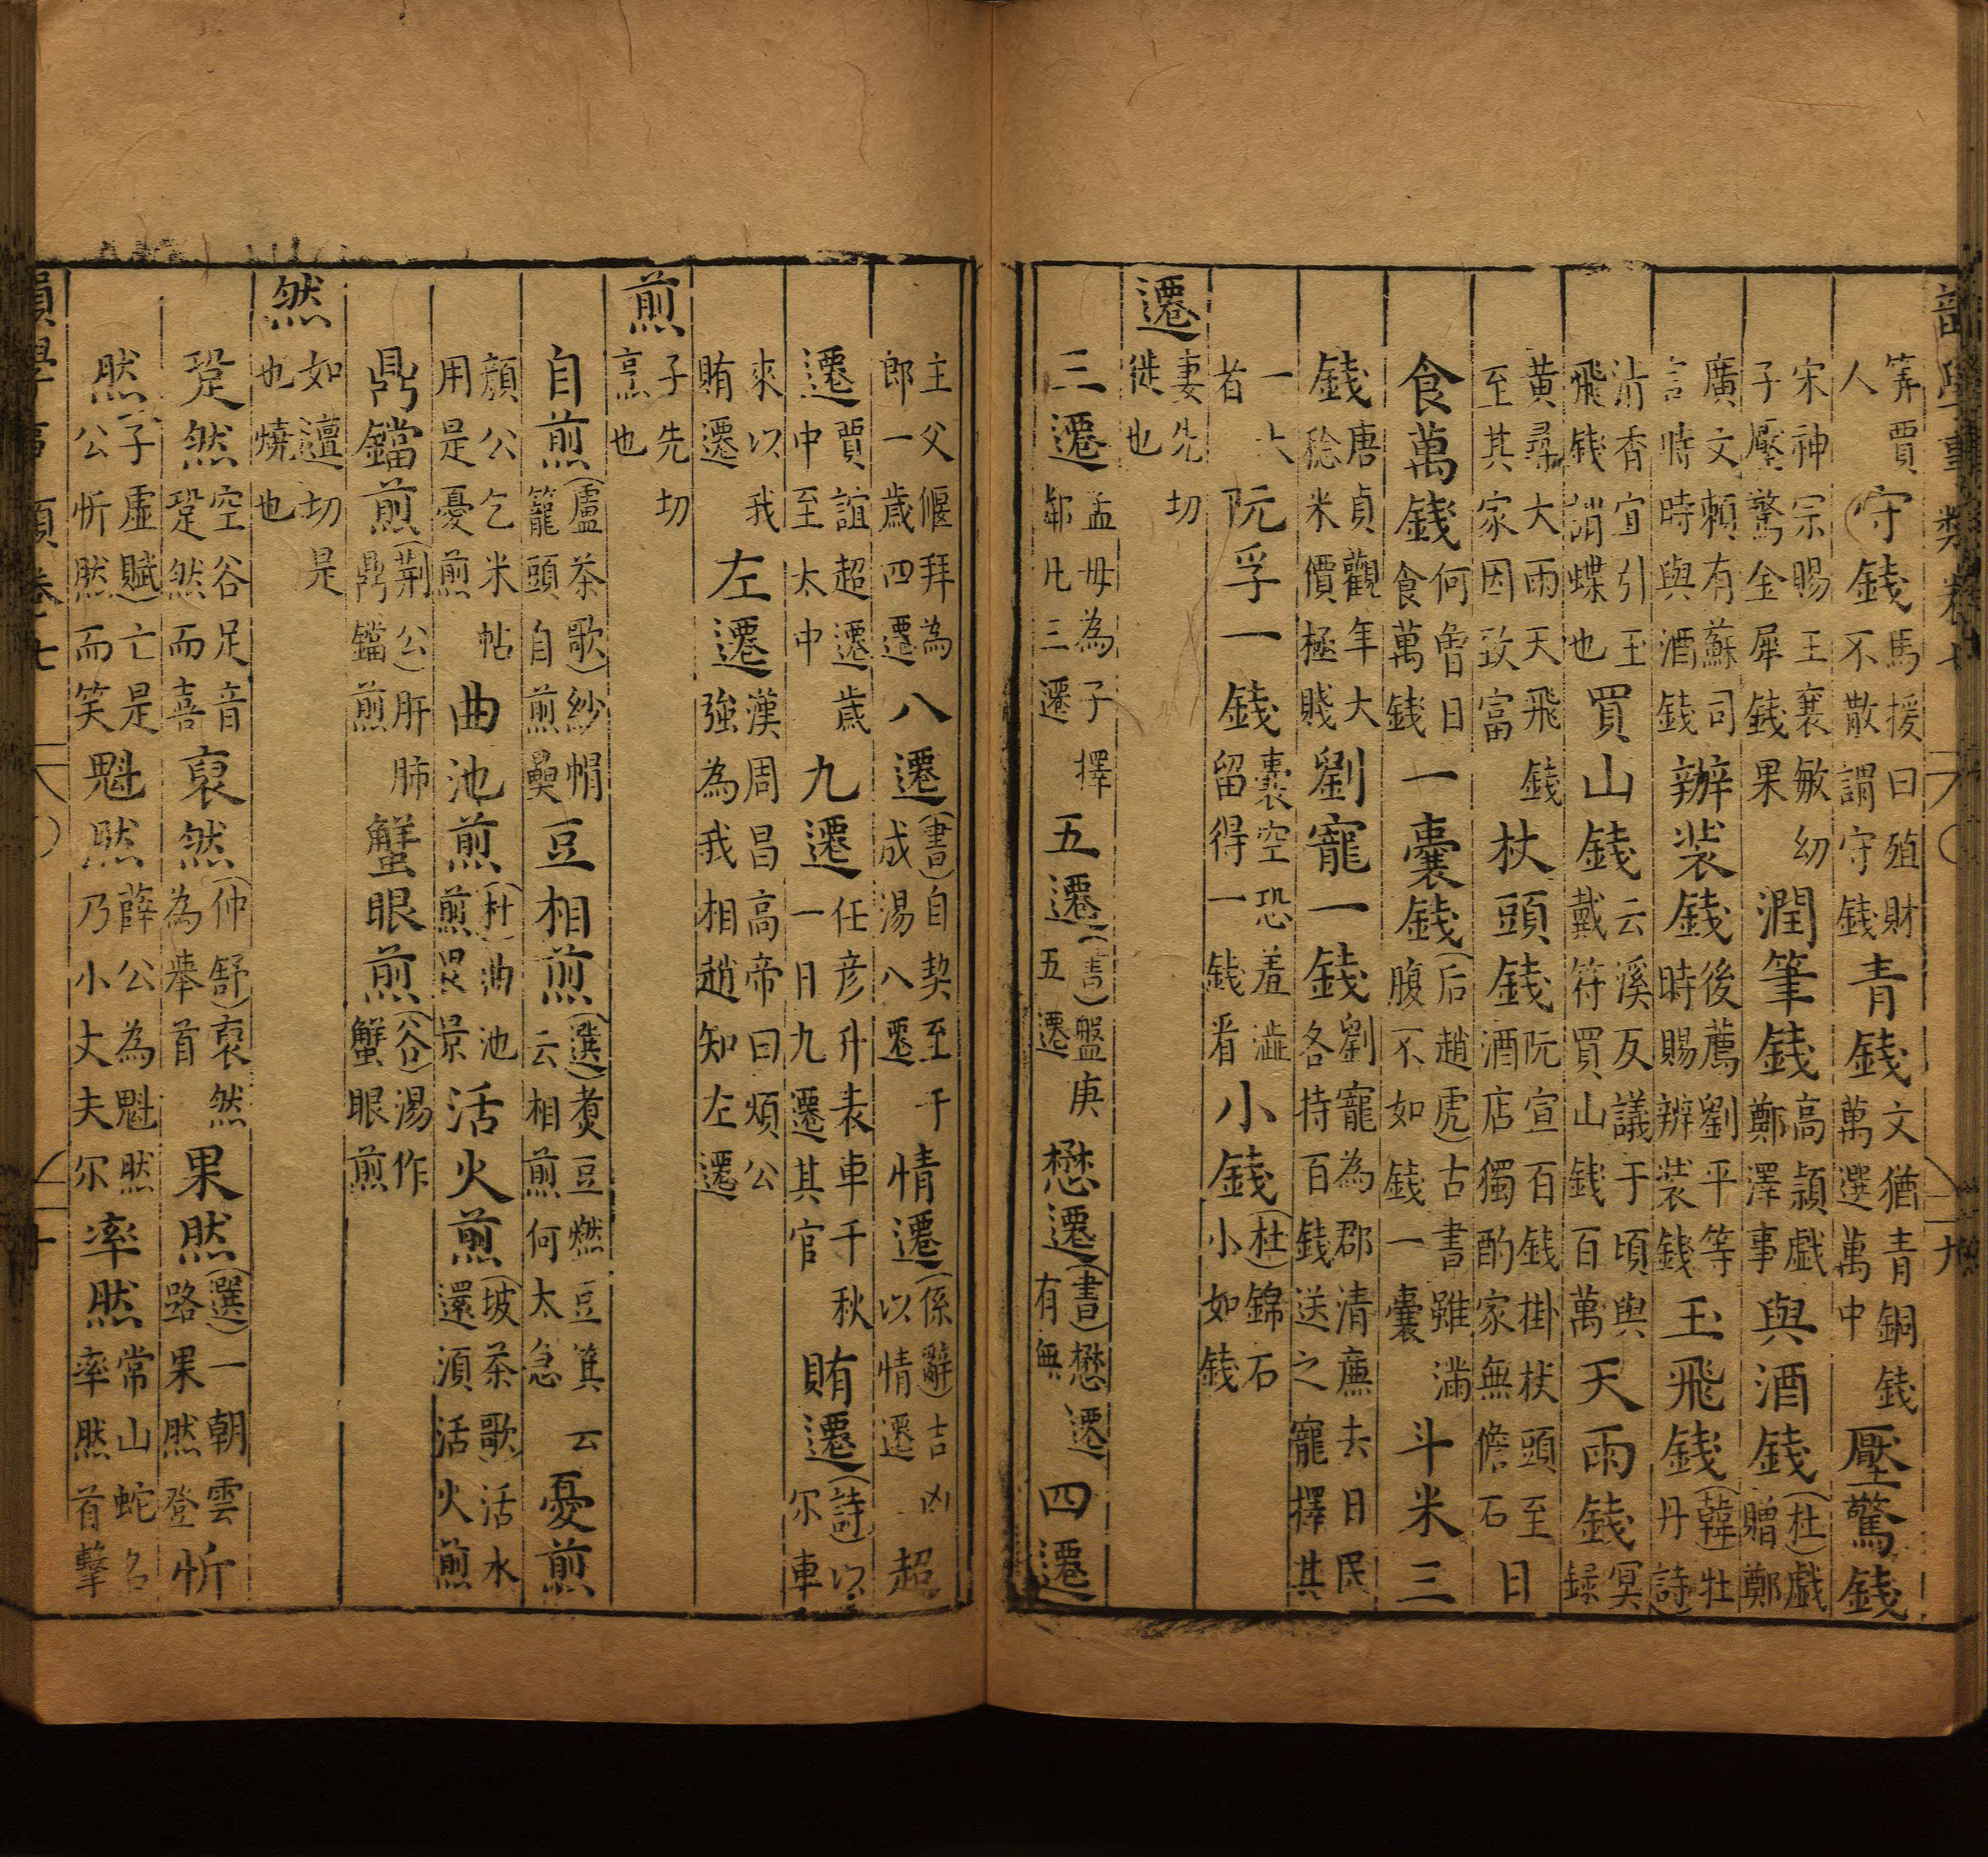 韻學事類卷七 十九
筭賈人守錢馬援曰殖財不散謂守錢青錢文猶青銅錢萬選萬中壓驚錢
宋神宗賜王襄敏幼子壓驚金犀錢果潤筆錢高熲戲鄭澤事與酒錢(杜)戲贈鄭
廣文賴有蘇司言時時與酒錢辦裝錢後薦劉平等時賜辦裝錢玉飛錢(韓牡丹詩)
清香宜引玉飛錢謂蝶也買山錢云溪友議于頃與戴符買山錢百萬天雨錢冥録
黃尋大雨天飛錢至其家因致富杖頭錢阮宣百錢掛杖頭至酒店獨酌家無儋石日
食萬錢何曾日食萬錢一囊錢(后趙虎)古書雖滿腹不如錢一囊斗米三
錢唐貞觀年大稔米價極賤劉寵一錢劉寵為郡清廉去日民各持百錢送之寵擇其
一大者阮孚一錢囊空恐羞澁留得一錢看小錢(杜)錦石小如錢
遷妻先切徙也
三遷孟母為子擇鄰凡三遷五遷(書)盤庚五遷懋遷(書)懋遷有無四遷
主父偃拜為郎一歲四遷八遷(書)自契至于成湯八遷情遷(係辭)吉凶以情遷超
遷賈誼超遷歲中至太中九遷任彥升表車千秋一日九遷其官賄遷(詩)以尔車
來以我賄遷左遷漢周昌高帝曰煩公強為我相趙知左遷
煎子先切烹也
自煎(盧茶歌)紗帽籠頭自煎豆相煎(選)煑豆燃豆萁云云相煎何太急憂煎
顏公乞米帖用是憂煎曲池煎(杜)曲池煎畏景活火煎(坡茶歌)活水還須活火煎
鼎鐺煎(荆公)肝肺鼎鐺煎蟹眼煎(谷)湯作蟹眼煎
然如邅切是也燒也
跫然空谷足音跫然而喜裒然(仲舒)裒然為舉首果然(選)一朝雲路果然登忻
然(子虛賦)亡是公忻然而笑魁然薛公為魁然乃小丈夫尔率然常山蛇名率然首擊
韻學事類卷七